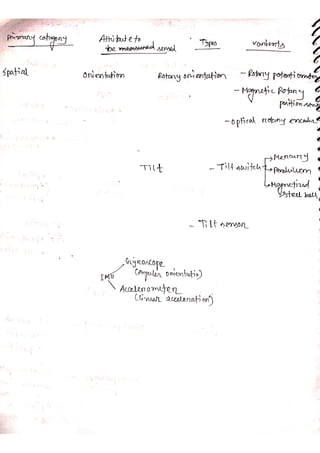 Primary category
Attribute to be measured/sensed
Types
Variants
Spatial
Orientation
Rotary orientation
- Rotary potentiomete
- Magnetic Rotary
position sens
- optical rotary encoder
Tilt
- Tilt switch
Mercury
Pendulum
Magnetized
steel ball
- Tilt sensor
IMU
Gyroscope
(angular orientatio)
Accelerometer
(linear acceleration)